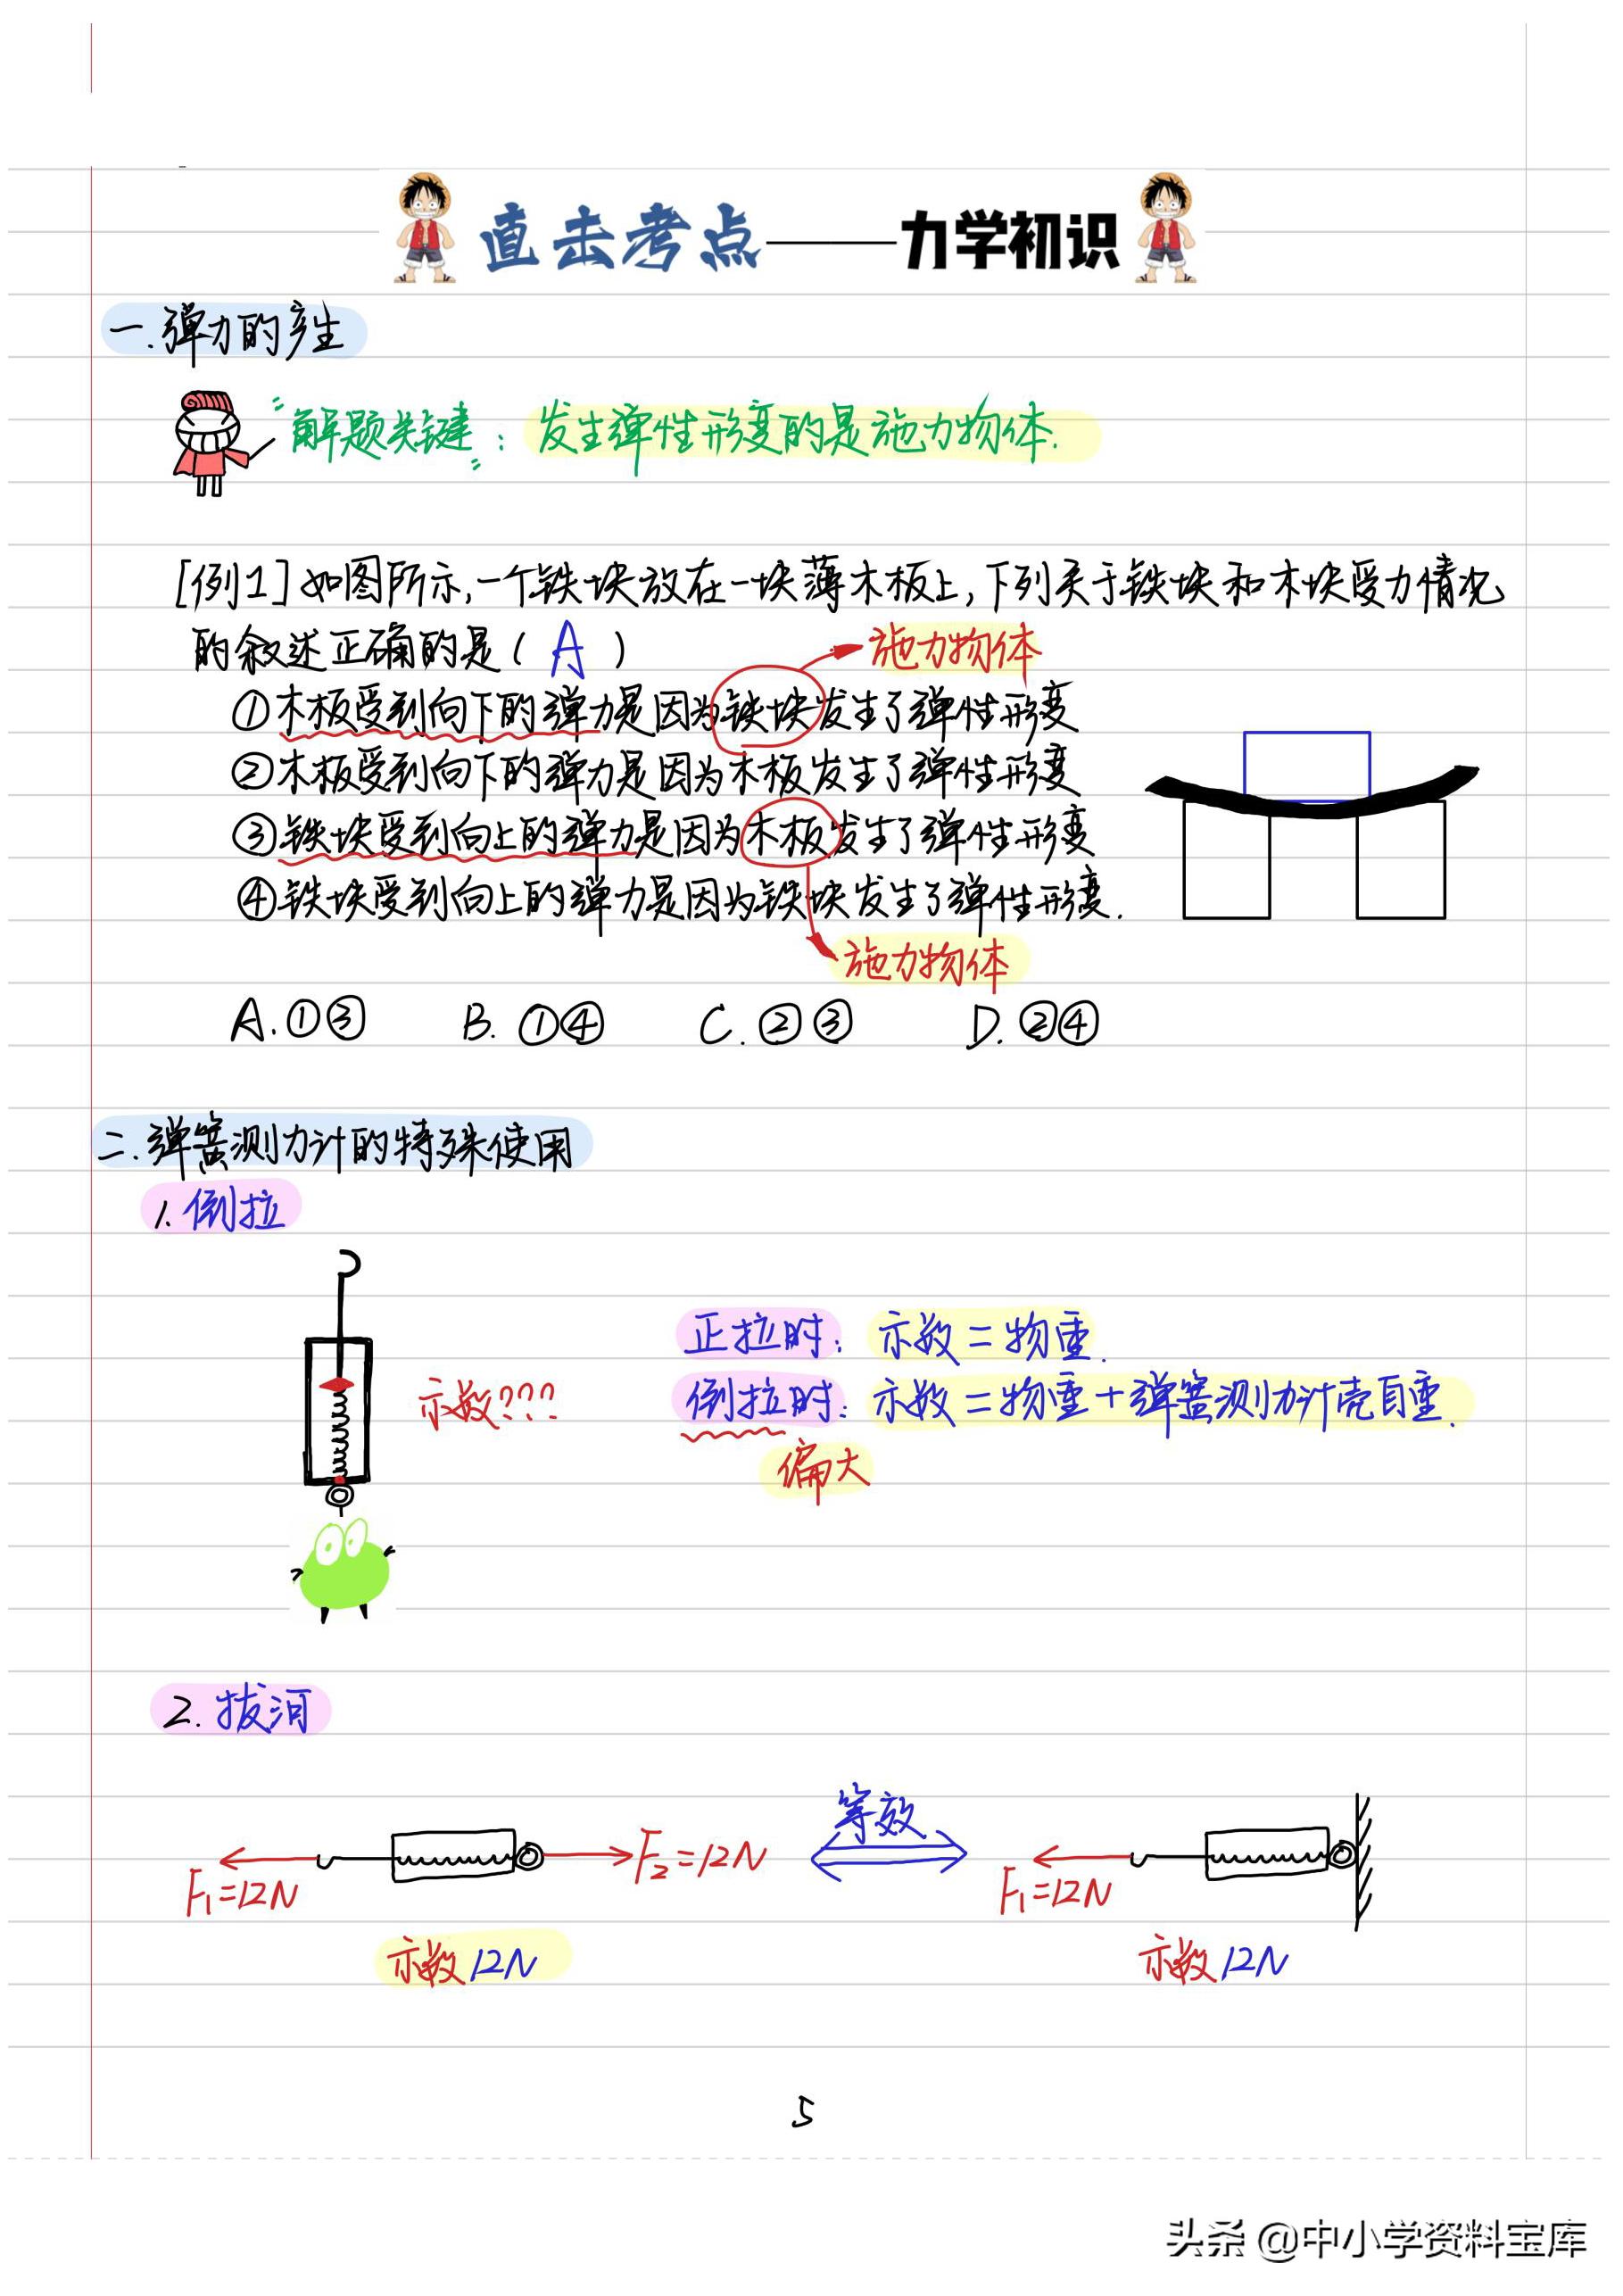 直击考点——力学初识
一.弹力的产生
"解题关键":发生弹性形变的是施力物体.
[例1]如图所示,一个铁块放在一块薄木板上,下列关于铁块和木块受力情况
的叙述正确的是( A )
施力物体
①木板受到向下的弹力是因为铁块发生了弹性形变
②木板受到向下的弹力是因为木板发生了弹性形变
③铁块受到向上的弹力是因为木板发生了弹性形变
④铁块受到向上的弹力是因为铁块发生了弹性形变.
施力物体
A.①③ B.①④ C.②③ D.②④
二.弹簧测力计的特殊使用
1.倒拉
正拉时:示数=物重.
示数???
倒拉时:示数=物重+弹簧测力计壳自重.
偏大
2.拔河
等效
F₁=12N F₂=12N F₁=12N
示数12N 示数12N
5
头条 @中小学资料宝库